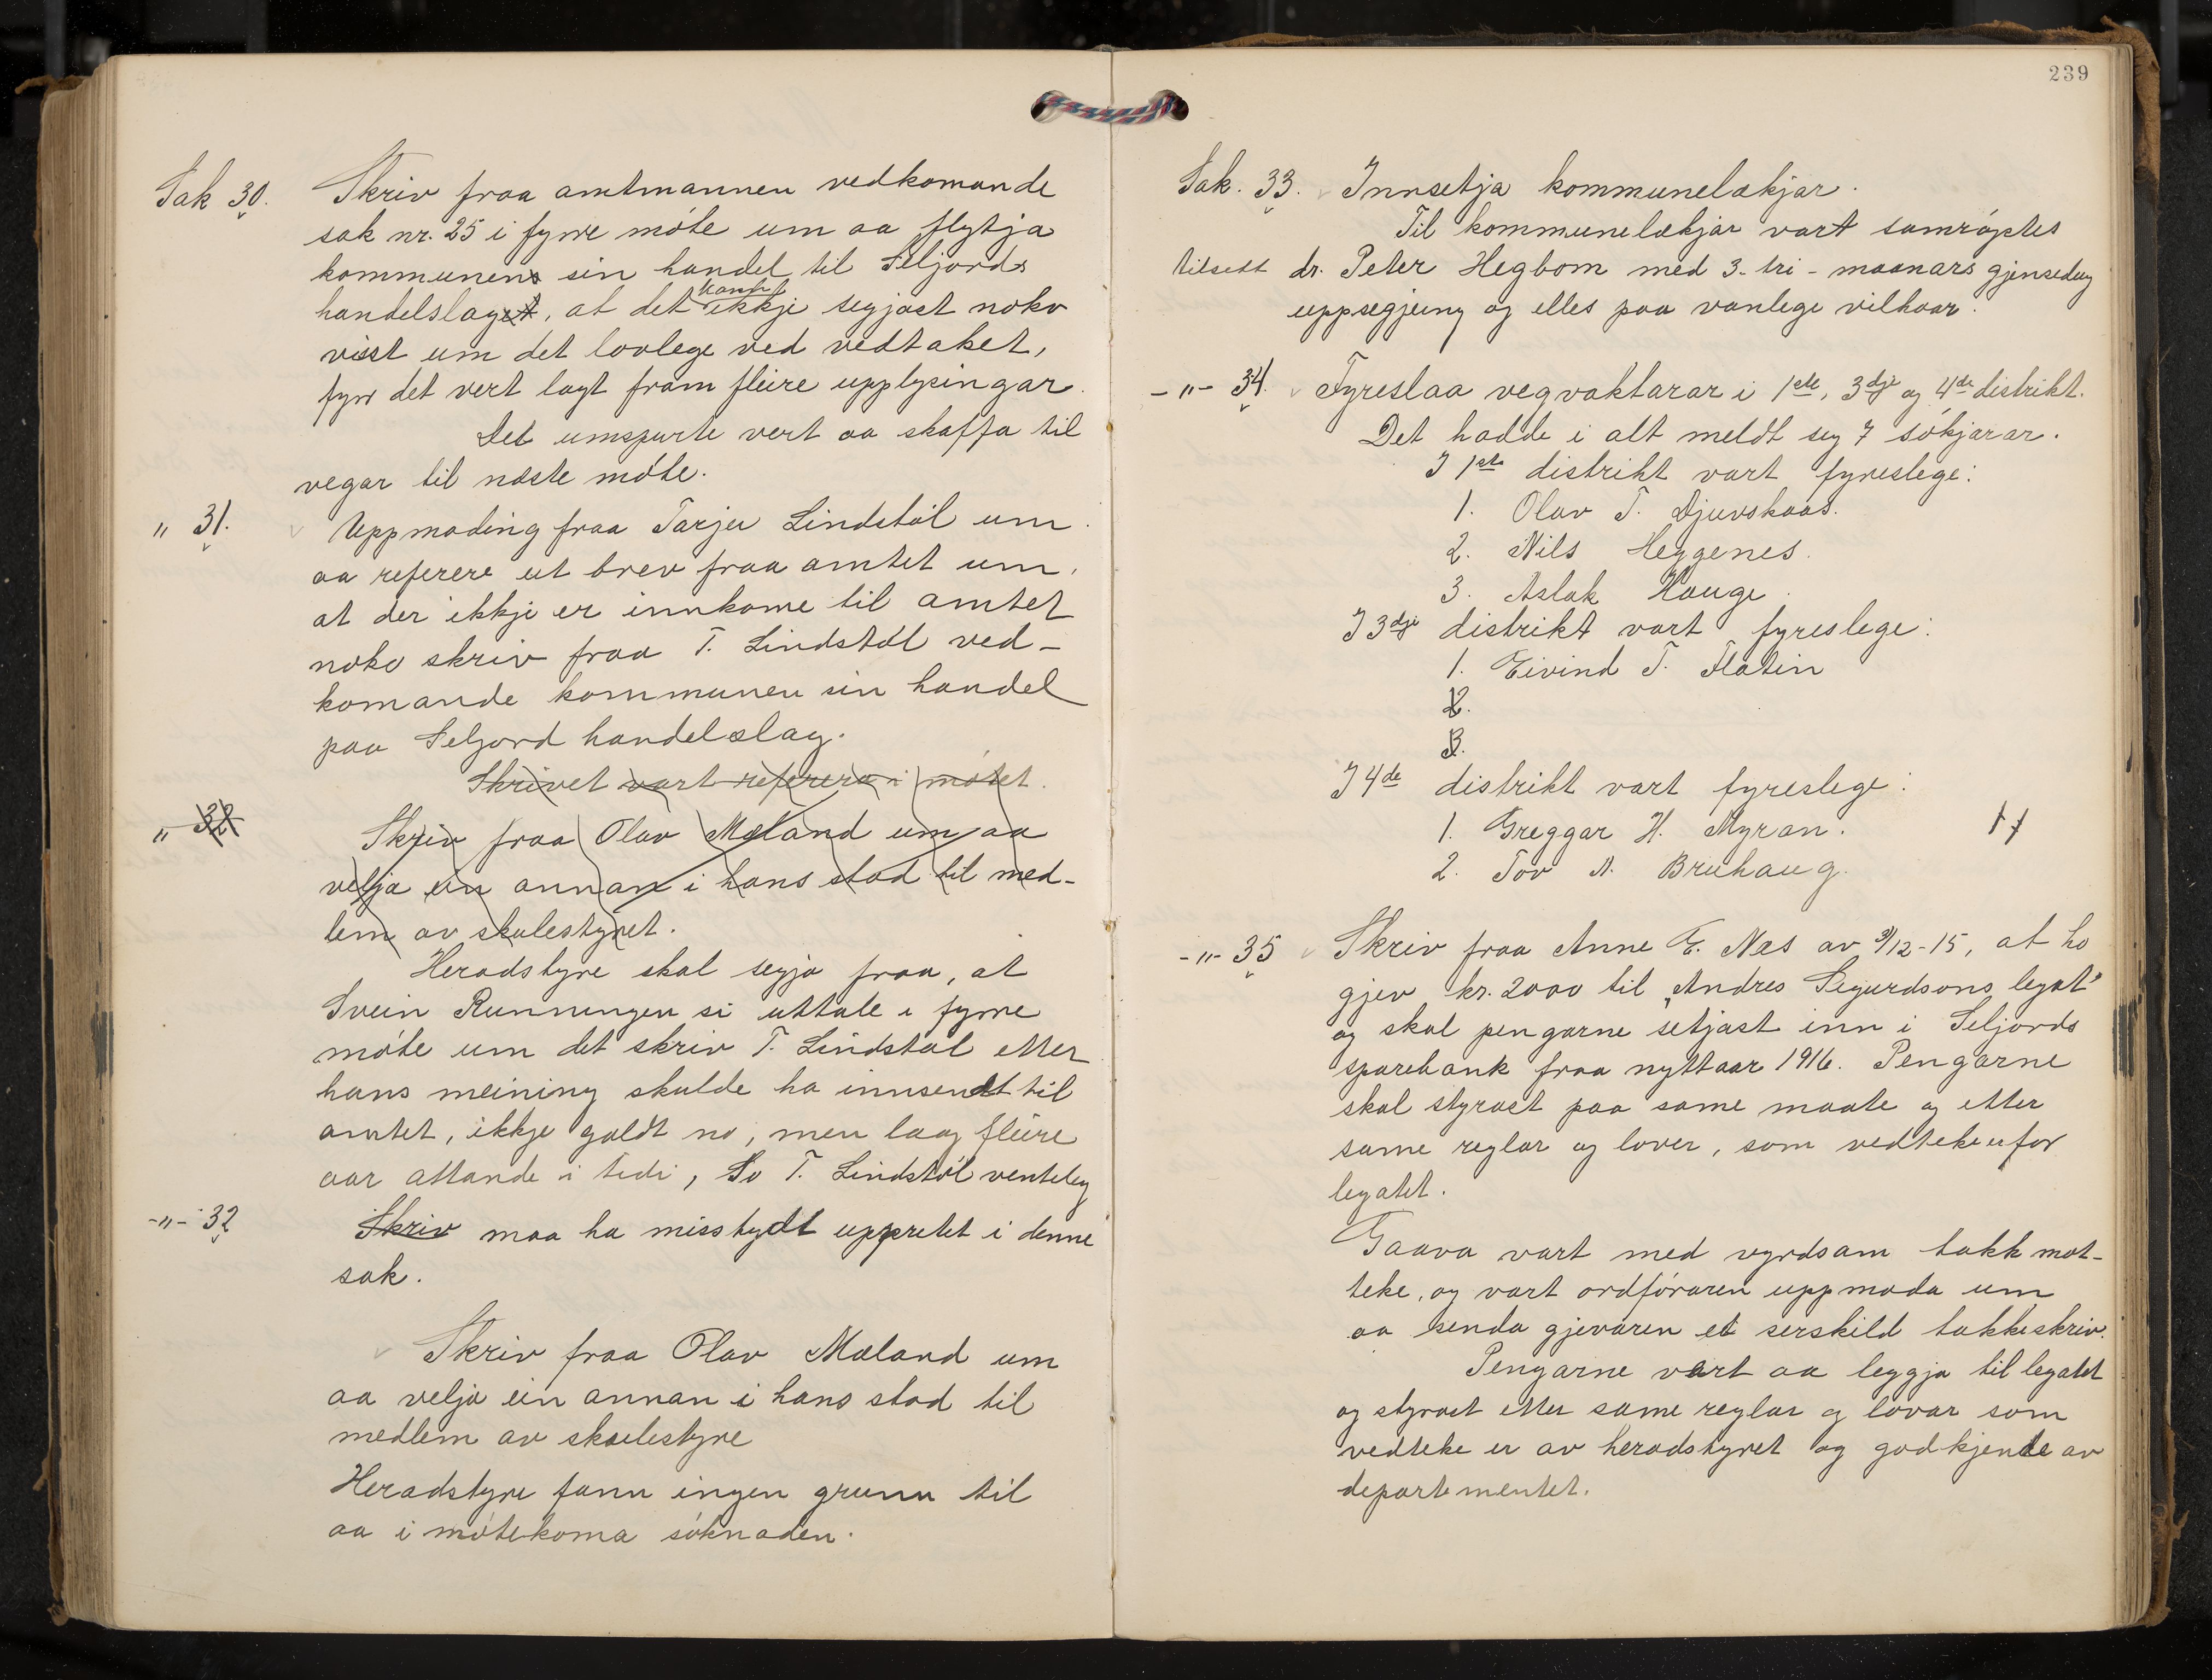 Sak 30. Skriv fraa amtmannen vedkomande
sak nr. 25 i fyrre móte um aa flytja
kommunens sin handel til Seljords
handelslaget, at det kann ikkje segjast noko
visst um det lovlege ved vedtaket,
fyrr det vert lagt fram fleire upplysingar.
Det umspurte vert aa skaffa til
vegar til næste móte.
" 31. Uppmoding fraa Tarjei Lindstól um
aa referere eit brev fraa amtet um,
at der ikkje er innkome til amtet
noko skriv fraa T. Lindstól ved-
komande kommunen sin handel
paa Seljord handelslag.
Skrivet vart referera i mótet.
" 32 Skriv fraa Olav Mæland um aa
velja ein annan i hans stad til med-
lem av skulestyret.
Heradstyre skal segja fraa, at
Svein Runningen si uttale i fyrre
móte um det skriv T. Lindstól etter
hans meining skulde ha innsendt til
amtet, ikkje galdt no, men laag fleire
aar attande i tidi, So T. Lindstól venteleg
-"- 32 Skriv maa ha misstydt uppretet i denne
sak.
Skriv fraa Olav Mæland um
aa velja ein annan i hans stad til
medlem av skulestyre
Heradstyre fann ingen grunn til
aa i mótekoma sóknaden.
239
Sak. 33. Innsetja kommunelækjar.
Til kommunelækjar vart samróystes
tilsett dr. Peter Hegbom med 3- tri - maanars gjensedug
uppsegjeing og elles paa vanlege vilkaar.
-"- 34. Fyreslaa vegvaktarar i 1ste, 3dje og 4de distrikt.
Det hadde i alt meldt seg 7 sókjarar.
I 1ste distrikt vart fyreslege:
1. Olav T. Djuvskaas.
2. Nils Heggenes.
3. Aslak Hauge.
I 3dje distrikt vart fyreslege:
1. Eivind T. Flatin
2.
3.
I 4de distrikt vart fyreslege:
1. Greggar H. Myran.
2. Tov A. Bruhaug.
-"- 35 Skriv fraa Anne E. Næs av 9/12-15, at ho
gjev kr. 2000 til "Andres Sigurdsons legat"
og skal pengarne setjast inn i Seljords
sparebank fraa nyttaar 1916. Pengarne
skal styrast paa same maate og etter
same reglar og lover, som vedteke er for
legatet.
Gaava vart med vyrdsam takk mot-
teke, og vart ordfóraren uppmoda um
aa senda gjevaren eit serskild takkeskriv.
Pengarne vert aa leggja til legatet
og styrast etter same reglar og lovar som
vedteke er av heradstyret og godkjende av
departementet.